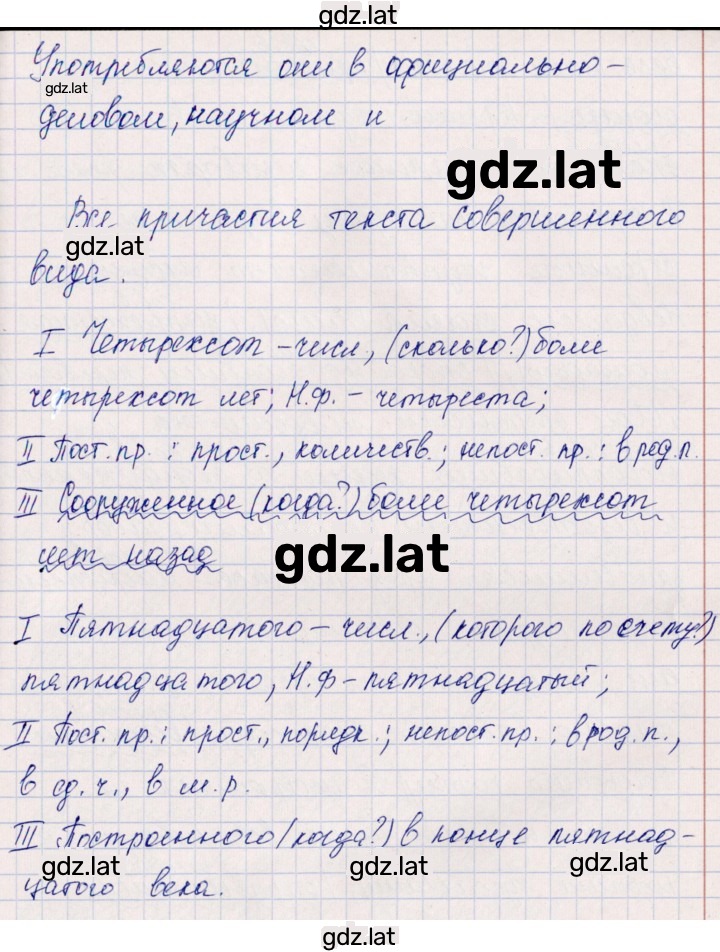 gdz.lat
Употребляются они в официально-
gdz.lat
деловом, научном и
gdz.lat
Все причастия текста совершенного
gdz.lat
вида.
I Четырехсот - числ, (сколько?) боле
четырехсот лет; Н.ф. - четыреста;
II Пост. пр. : прост., количеств.; непост. пр.: в род. п.
III Сооруженное (когда?) боле четырехсот
лет назад
gdz.lat
I Пятнадцатого - числ., (которого по счету?)
пятнадцатого, Н.ф - пятнадцатый;
II Пост. пр.: прост., порядк.; непост. пр.: в род. п.,
в ед. ч., в м. р.
III Построенного (когда?) в конце пятнад-
gdz.lat gdz.lat gdz.lat
цатого века.
gdz.lat